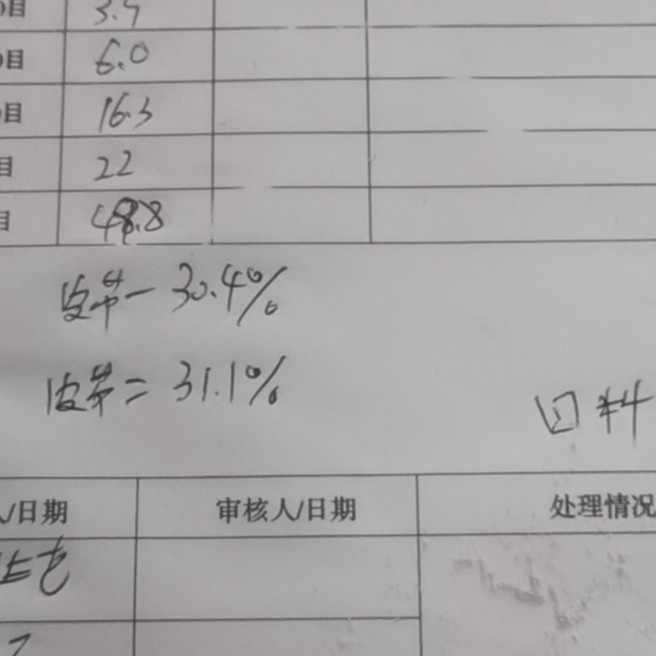 目 3.9
目 6.0
目 16.3
目 22
目 48.8
皮带一 30.4%
皮带二 31.1%
回料
/日期 审核人/日期 处理情况